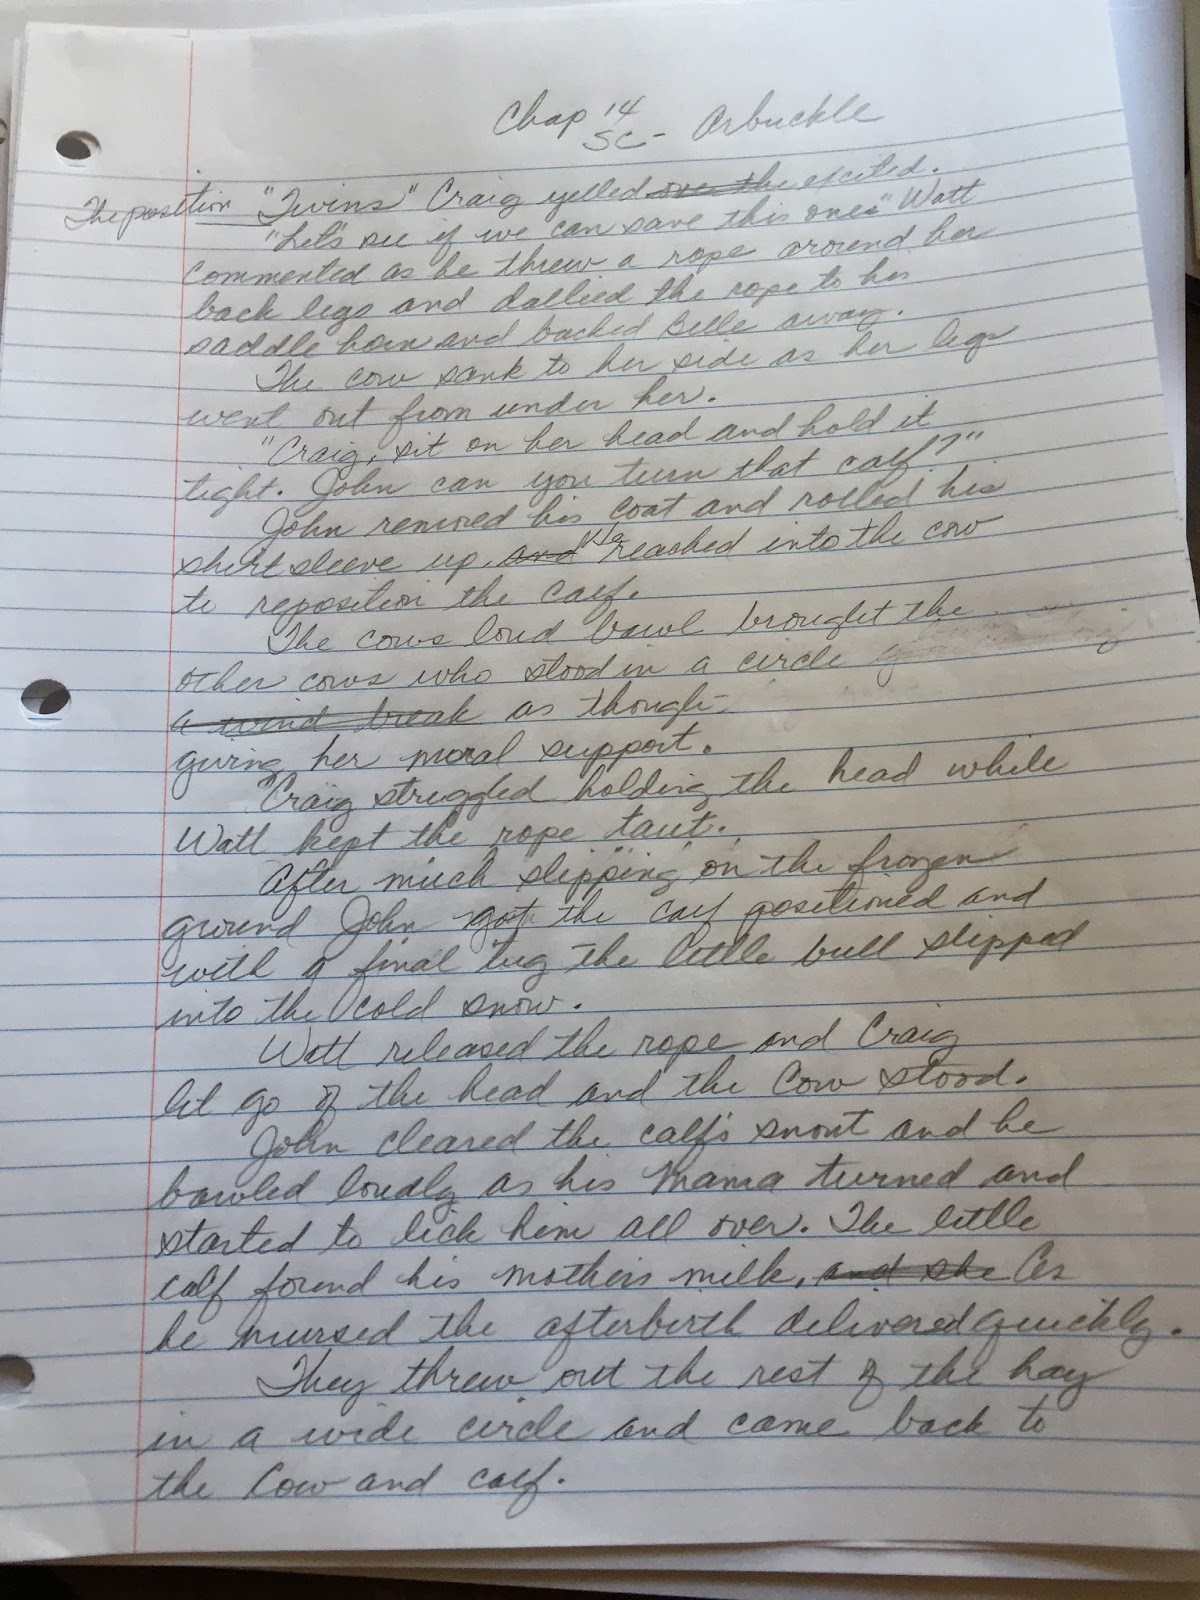 Chap 14
SC - Arbuckle
The position "Twins" Craig yelled over the excited.
"Let's see if we can save this one." Watt
commented as he threw a rope around her
back legs and dallied the rope to his
saddle horn and backed Belle away.
The cow sank to her side as her legs
went out from under her.
"Craig, sit on her head and hold it
tight. John can you turn that calf?"
John removed his coat and rolled his
shirt sleeve up. and He reached into the cow
to reposition the calf.
The cows loud bawl brought the
other cows who stood in a circle
a wind break as though
giving her moral support.
Craig struggled holding the head while
Watt kept the rope taut.
After much slipping on the frozen
ground John got the calf positioned and
with a final tug the little bull slipped
into the cold snow.
Watt released the rope and Craig
let go of the head and the Cow stood.
John cleared the calf's snout and he
bawled loudly as his Mama turned and
started to lick him all over. The little
calf found his mothers milk, and she As
he nursed the afterbirth delivered quickly.
They threw out the rest of the hay
in a wide circle and came back to
the Cow and calf.